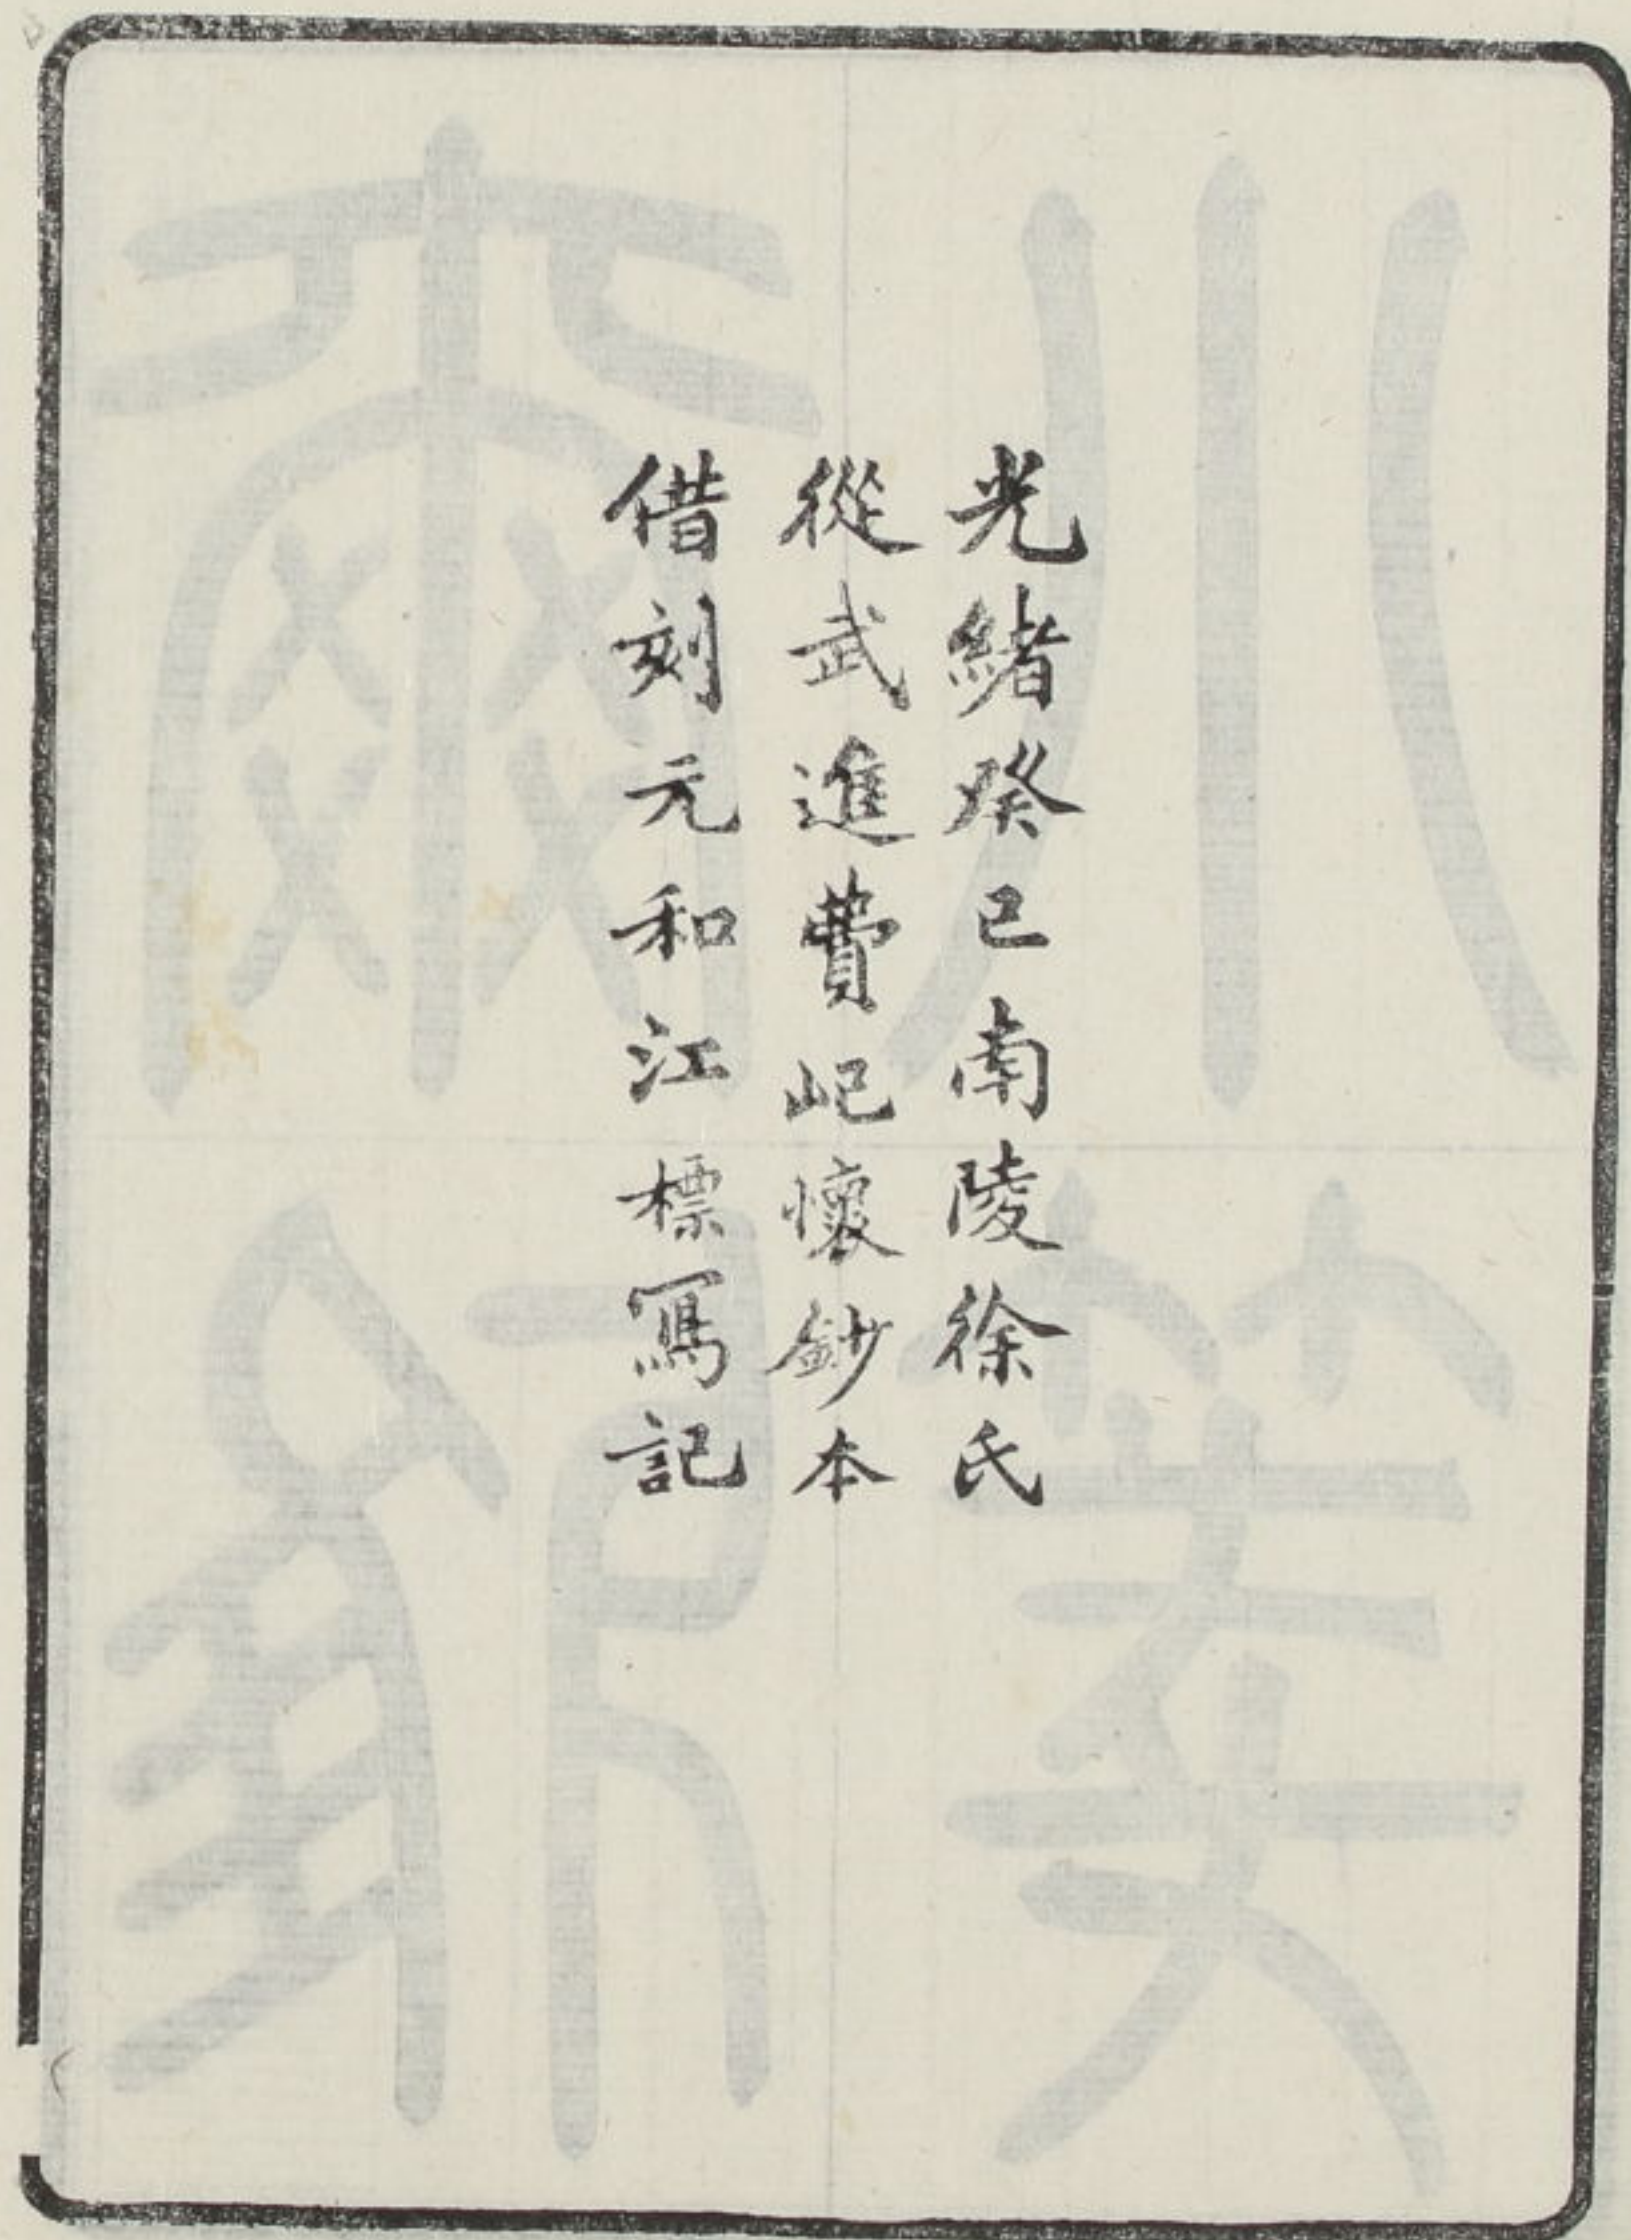 光緒癸巳南陵徐氏
從武進費屺懷鈔本
借刻元和江標寫記